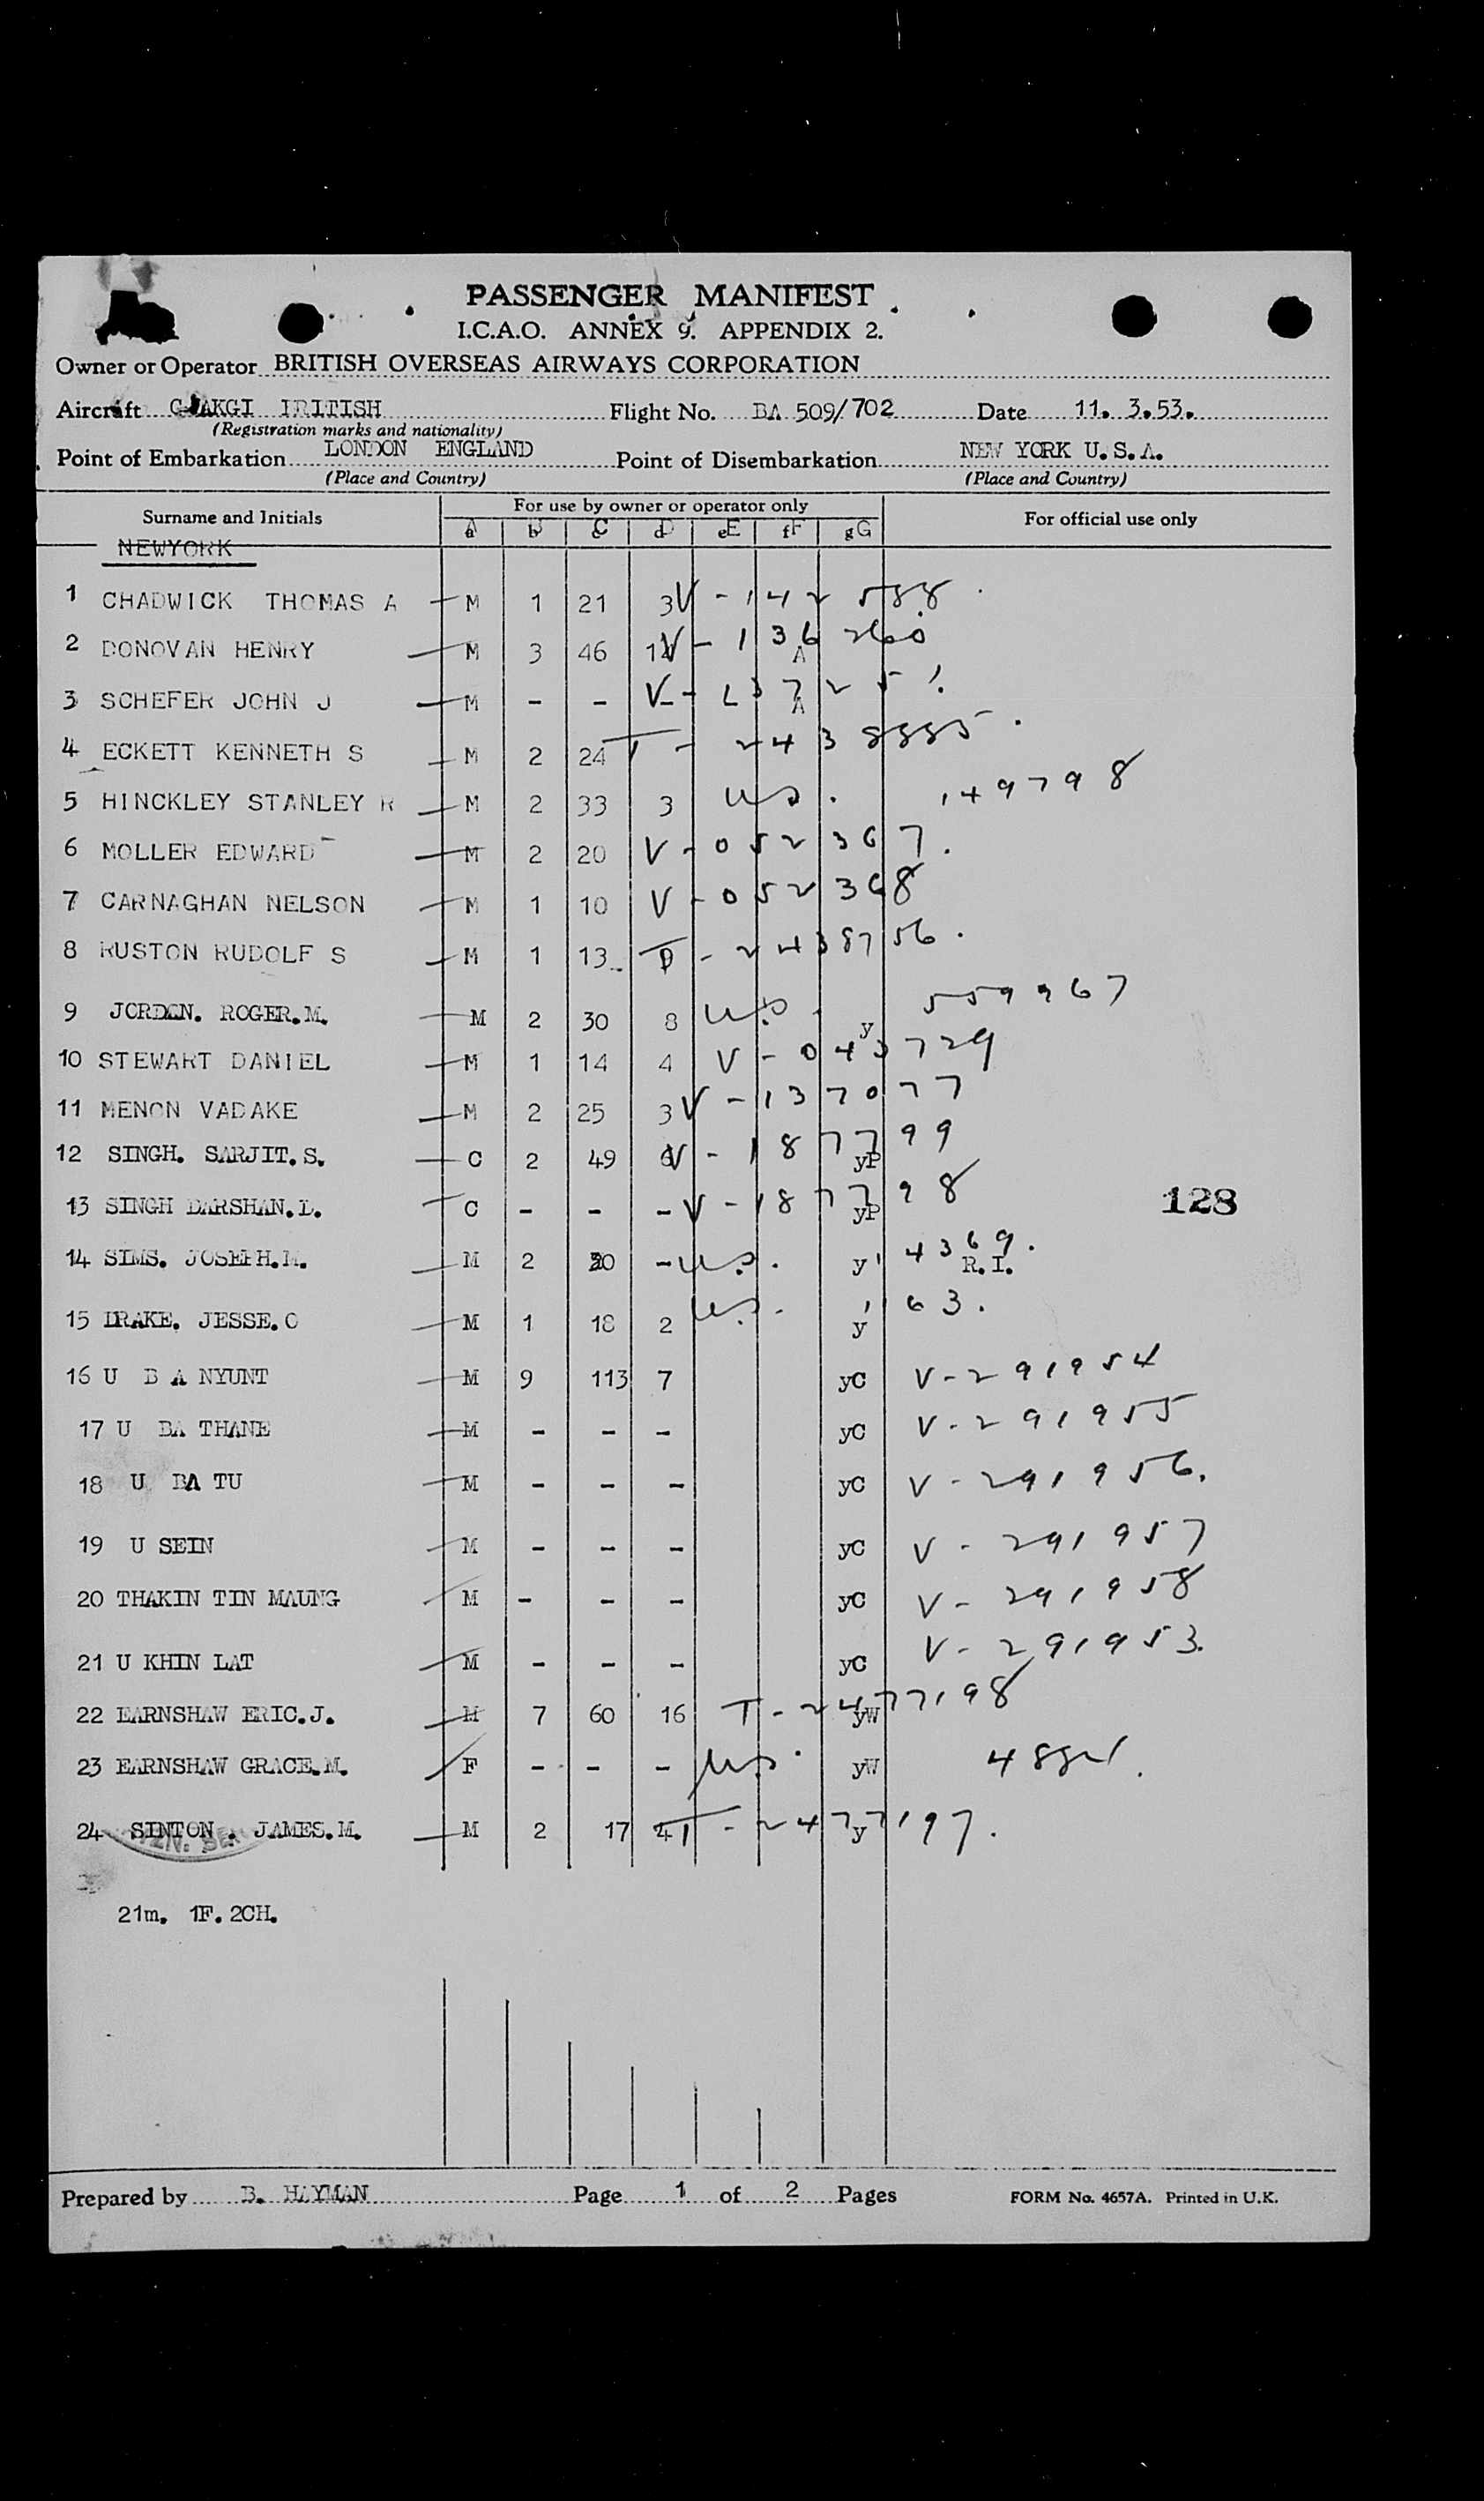 PASSENGER MANIFEST
I.C.A.O. ANNEX 9. APPENDIX 2.
Owner or Operator BRITISH OVERSEAS AIRWAYS CORPORATION
Aircraft Flight No. BA 509/702 Date 11. 3.53.
(Registration marks and nationality)
Point of Embarkation LONDON ENGLAND Point of Disembarkation NEW YORK U.S.A.
(Place and Country) (Place and Country)
For use by owner or operator only
Surname and Initials For official use only
A B C D E F G
a b c d e f g
NEWYORK
1 CHADWICK THOMAS A M 1 21 3 V - 142 588.
2 DONOVAN HENRY M 3 46 V - 136 260 A
3 SCHEFER JOHN J M - - V - A
4 ECKETT KENNETH S M 2 24 T - 2438885.
5 HINCKLEY STANLEY R M 2 33 3 U.S. 149798
6 MOLLER EDWARD M 2 20 V - 052367.
7 CARNAGHAN NELSON M 1 10 V - 052368
8 RUSTON RUDOLF S M 1 13 T - 2438756.
9 JORDON. ROGER.M. M 2 30 8 U.S. y 559967
10 STEWART DANIEL M 1 14 4 V - 043729
11 MENON VADAKE M 2 25 3 V - 137077
12 SINGH. SARJIT.S. C 2 49 V - 187799 yP
13 SINGH DARSHAN.D. C - - - V - 187798 yP
128
14 SIMS. JOSEPH.M. M 2 - U.S. y 4369. R.I.
15 DRAKE. JESSE.O M 1 18 2 U.S. y 163.
16 U B A NYUNT M 9 113 7 yC V - 291954
17 U BA THANE M - - - yC V - 291955
18 U BA TU M - - - yC V - 291956.
19 U SEIN M - - - yC V - 291957
20 THAKIN TIN MAUNG M - - - yC V - 291958
21 U KHIN LAT M - - - yC V - 291953.
22 EARNSHAW ERIC.J. M 7 60 16 T - 2477198 yW
23 EARNSHAW GRACE.M. F - - - U.S. yW
24 SINTON. JAMES.M. M 2 17 4 T - 2477197. y
21m. 1F. 2CH.
Prepared by B. HAYMAN Page 1 of 2 Pages FORM No. 4657A. Printed in U.K.